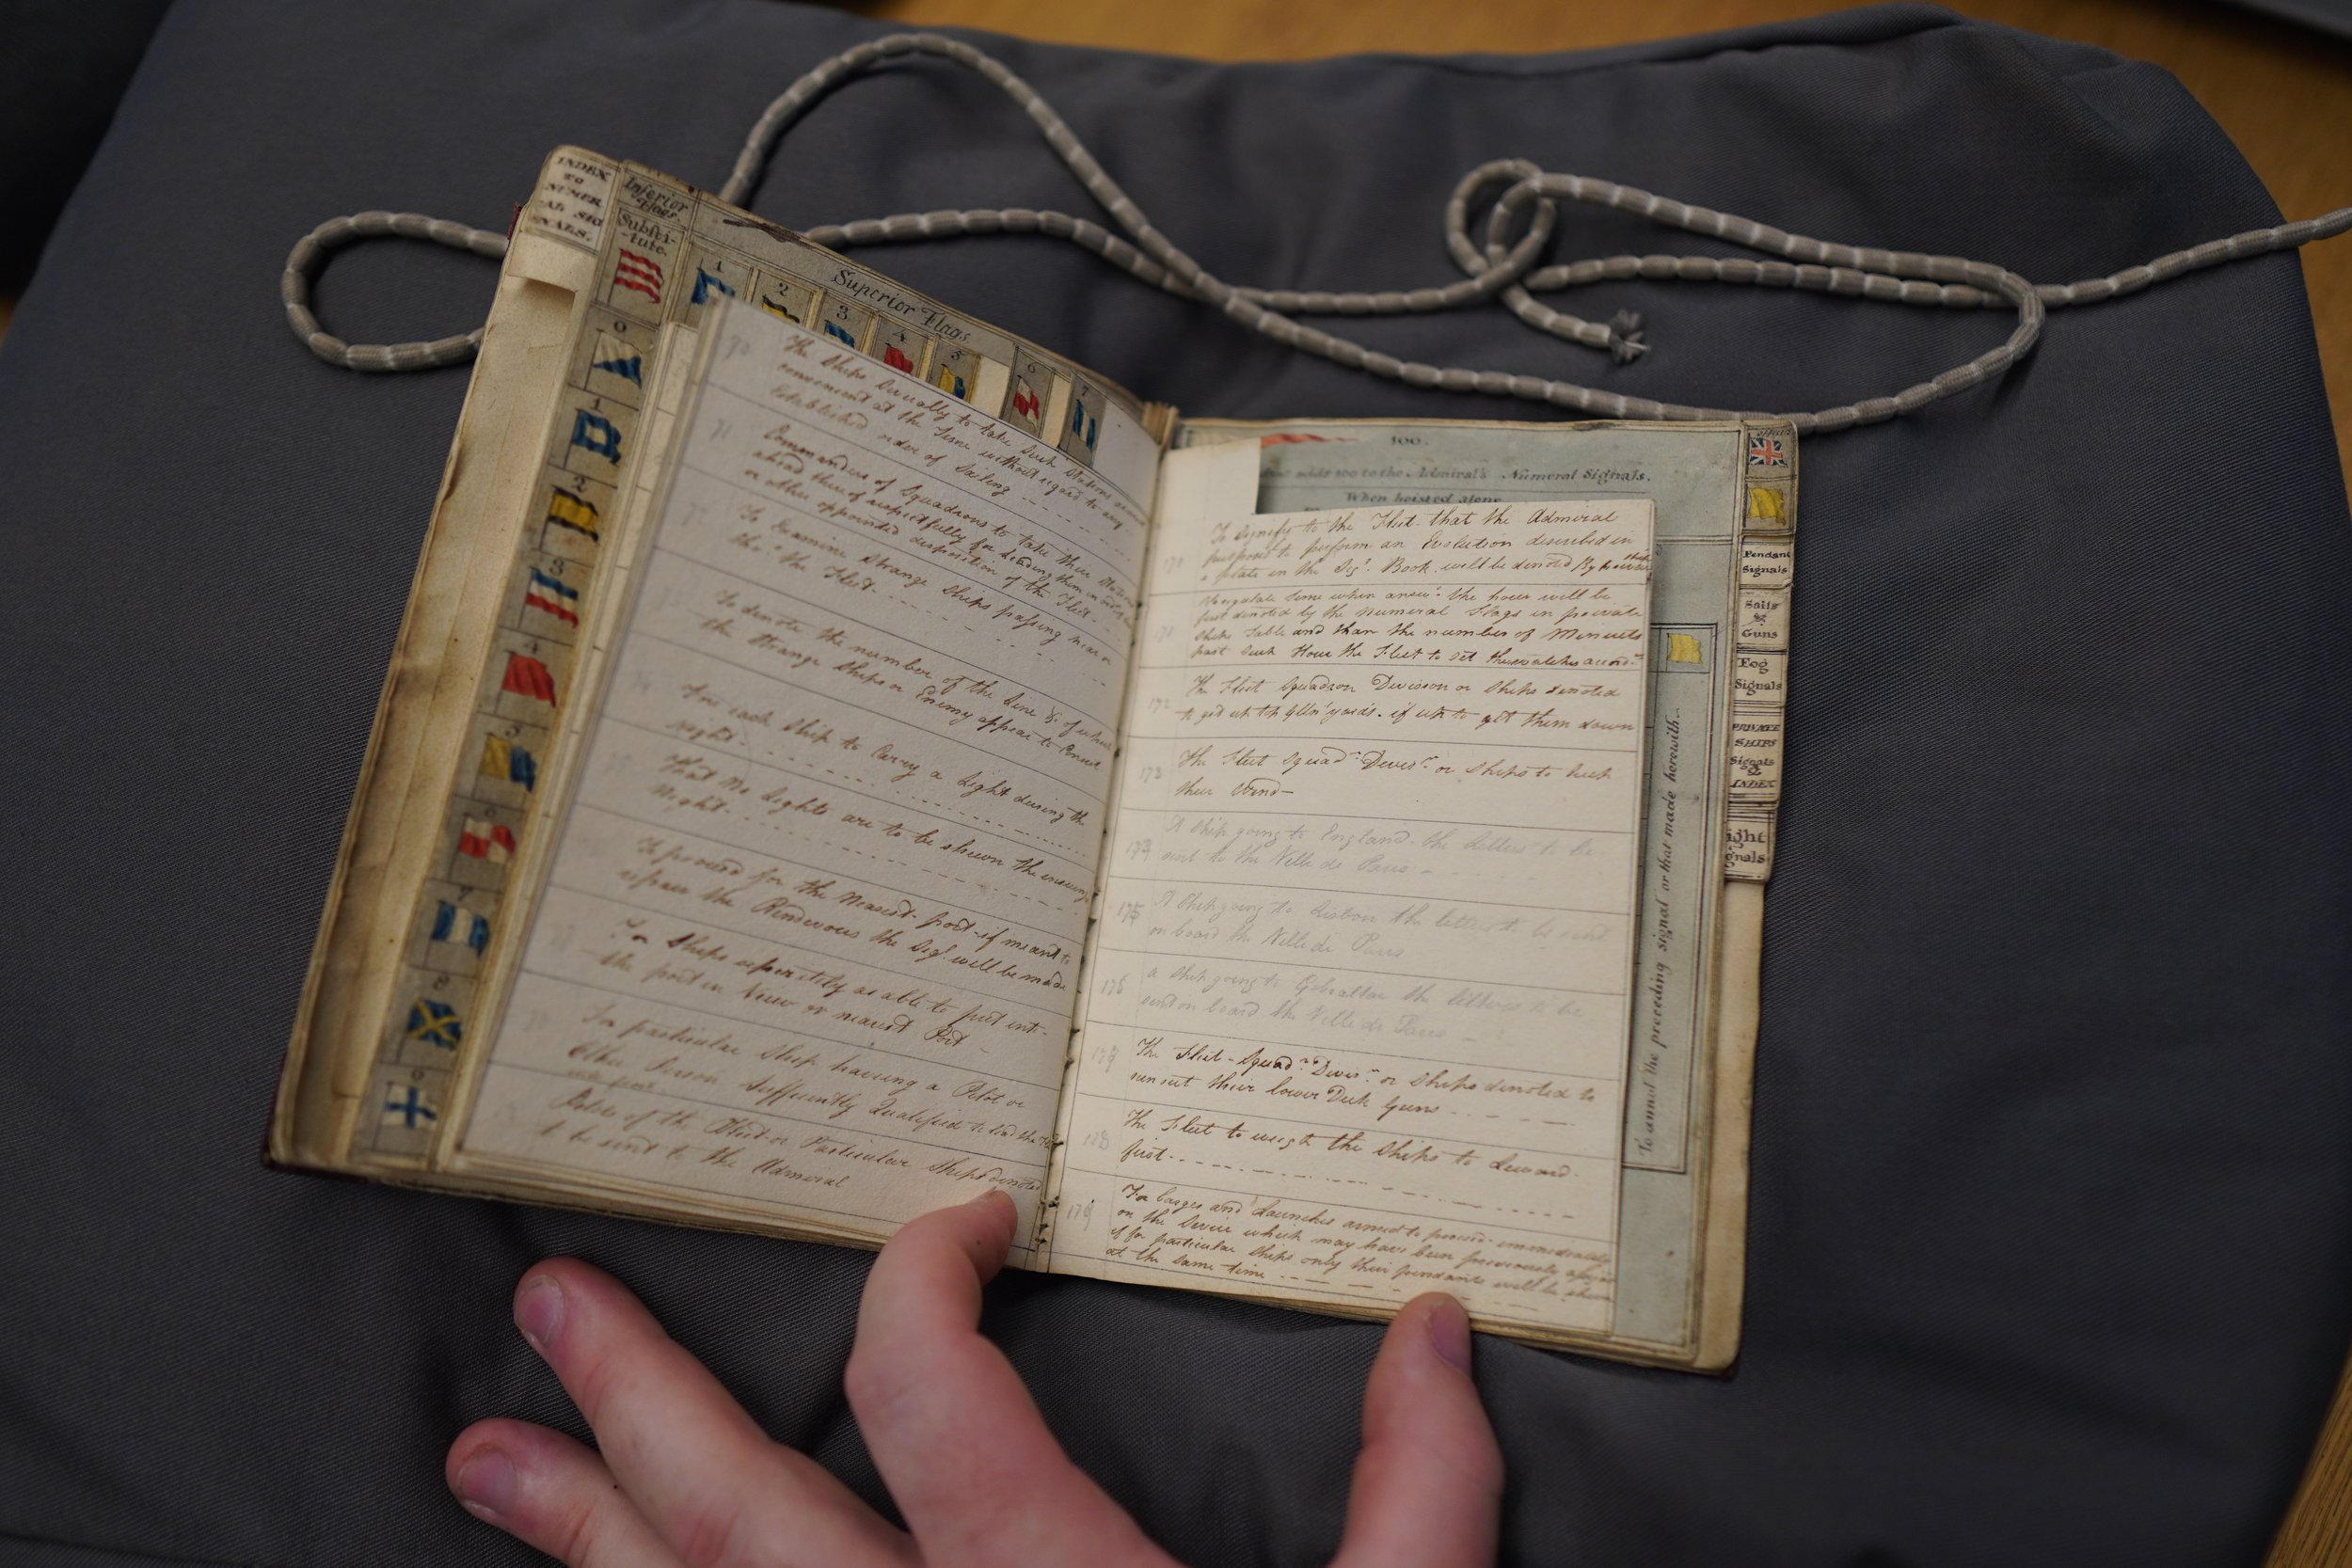 INDEX
TO
NUMER
AL SIG
NALS.
Inferior
Flags
Substi-
-tute.
0
1
2
3
4
5
6
7
8
9
Superior Flags
1
2
3
4
5
6
7
70
The Ships Severally to take Such Stations as are
convenient at the Time without regard to any
Established order of Sailing
71
Commanders of Squadrons to take their Stations
ahead thereof respectfully for leading them in
or other appointed disposition of the Fleet
72
To Examine Strange Ships passing near or
thro' the Fleet
To denote the number of the Line &c of which
the Strange Ships or Enemy appear to Consist
For each Ship to Carry a Light during the
Night
That No Lights are to be shewn the ensuing
Night
To proceed for the Nearest port if meant to
repair the Rendevous the Sigl. will be made
For Ships separately as able to put into
the port in View or nearest Port
For particular Ship having a Pilot or
Other Person Sufficiently Qualified to lead the
of the Fleet or Particular Ships denoted
to be sent to the Admiral
100.
adds 100 to the Admiral's Numeral Signals.
When hoisted alone
170
To Signify to the Fleet that the Admiral
purposes to perform an Evolution described in
a plate in the Sigl. Book will be denoted By
171
To regulate time when answd. the hour will be
first denoted by the Numeral Flags in private
Ships Table and than the number of Minuets
past Such Hour the Fleet to set their watches accord
172
The Fleet Squadron Devission or Ships denoted
to get up top Glln' yards. if up to get them down
173
The Fleet Squadn. Devisn. or Ships to keep
their Wind
174
A Ship going to England. the letters to be
sent to the Ville de Paris
175
A Ship going to Lisbon the letters to be sent
on board the Ville de Paris
176
a Ship going to Gibraltar the letters to be
sent on board the Ville de Paris
177
The Fleet-Squadn. Devisn. or Ships denoted to
run out their lower Deck Guns
178
The Fleet to weigh the Ships to Leward
first
179
For barges and Launches armed to proceed immediately
on the Service which may have been previously
if for particular Ships only their pendants will be shewn
at the same time
To annul the preceding signal or that made herewith.
Pendant
Signals
Sails
&
Guns
Fog
Signals
PRIVATE
SHIPS
Signals
&
INDEX
ight
gnals